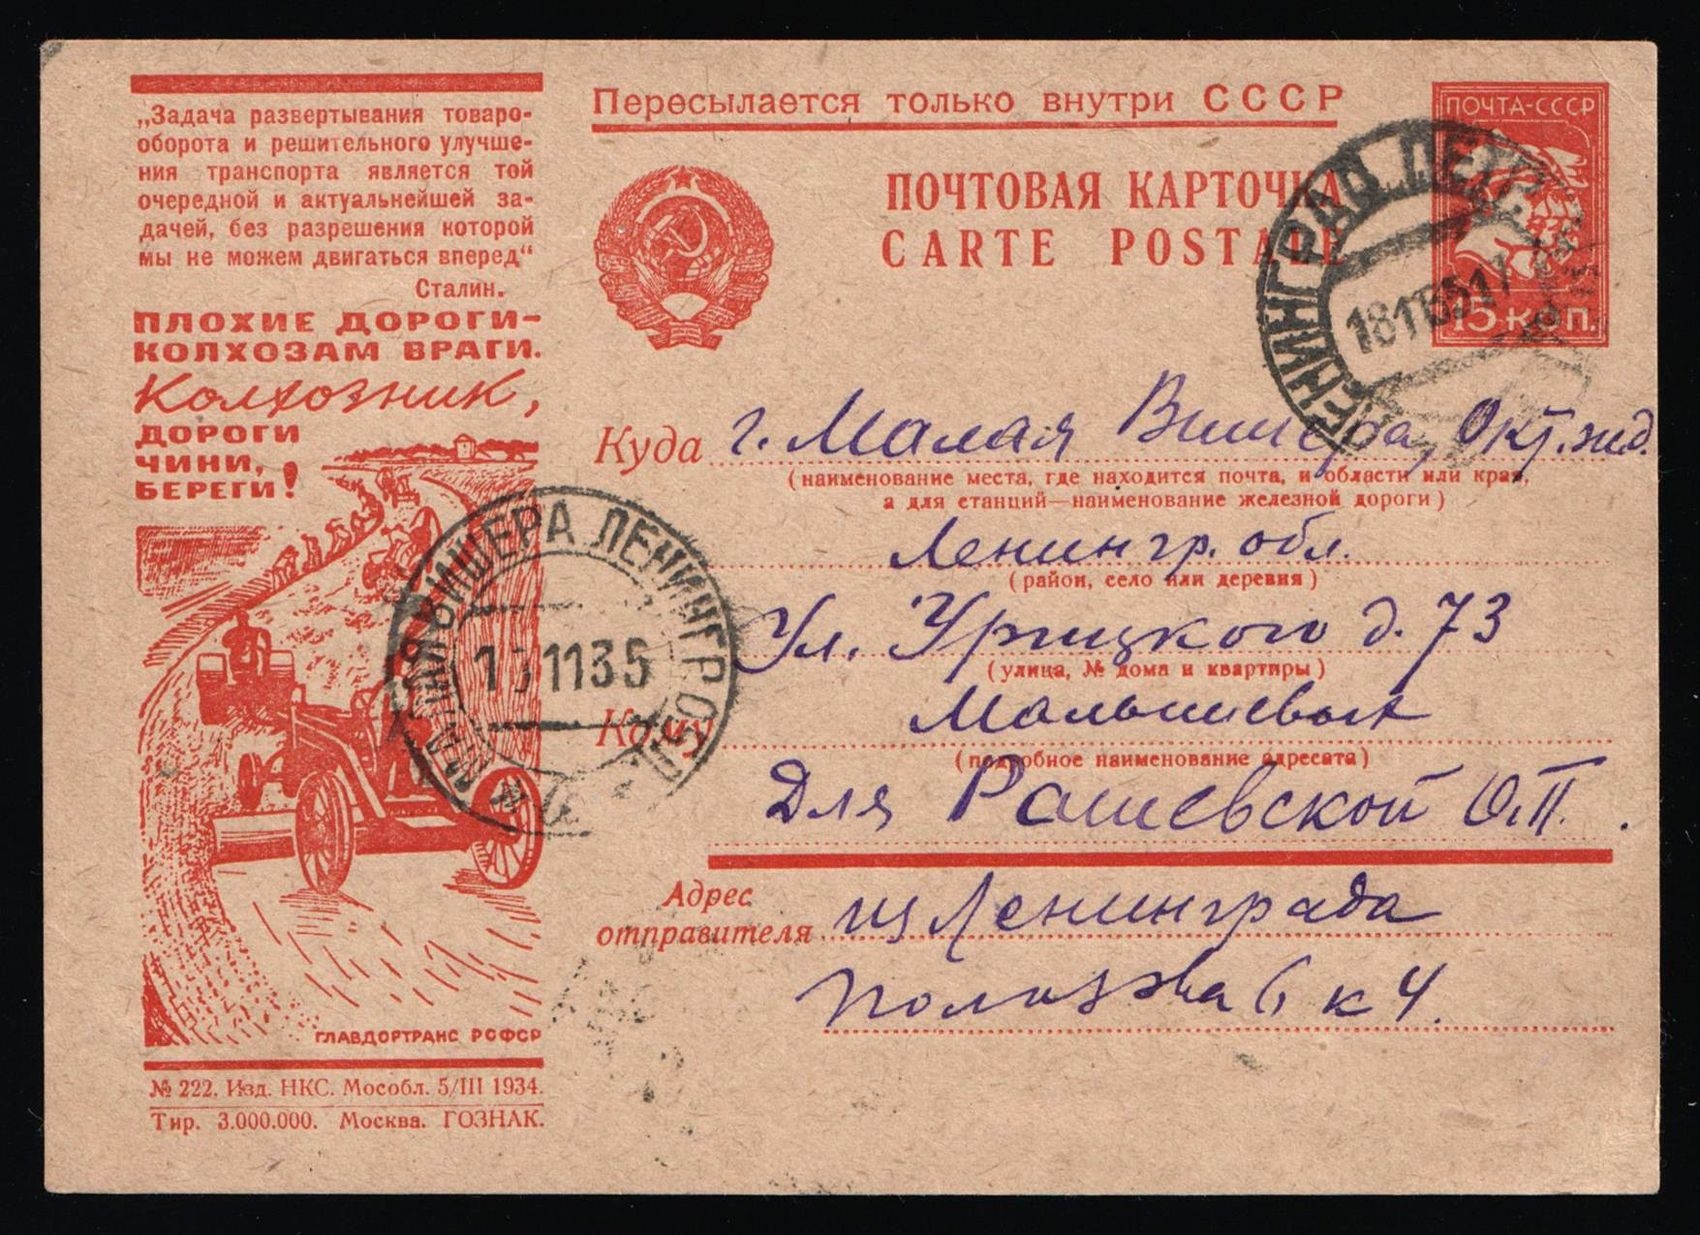 „Задача развертывания товаро-
оборота и решительного улучше-
ния транспорта является той
очередной и актуальнейшей за-
дачей, без разрешения которой
мы не можем двигаться вперед“
Сталин.
ПЛОХИЕ ДОРОГИ-
КОЛХОЗАМ ВРАГИ.
Колхозник,
ДОРОГИ
ЧИНИ,
БЕРЕГИ!
ГЛАВДОРТРАНС РСФСР
№ 222. Изд. НКС. Мособл. 5/III 1934.
Тир. 3.000.000. Москва. ГОЗНАК.
Пересылается только внутри СССР
ПОЧТОВАЯ КАРТОЧКА
CARTE POSTALE
ПОЧТА-СССР
15 КОП.
ЛЕНИНГРАД
Куда г. Малая Вишера, Окт. жд.
(наименование места, где находится почта, и области или края,
а для станций—наименование железной дороги)
Ленингр. обл.
(район, село или деревня)
Ул. Урицкого д. 73
(улица, № дома и квартиры)
Кому Малышевых
(подробное наименование адресата)
Для Рашевской О.П.
ВИШЕРА ЛЕНИНГР. ОБЛ
1135
Адрес
отправителя из Ленинграда
Полозова 6 к 4.